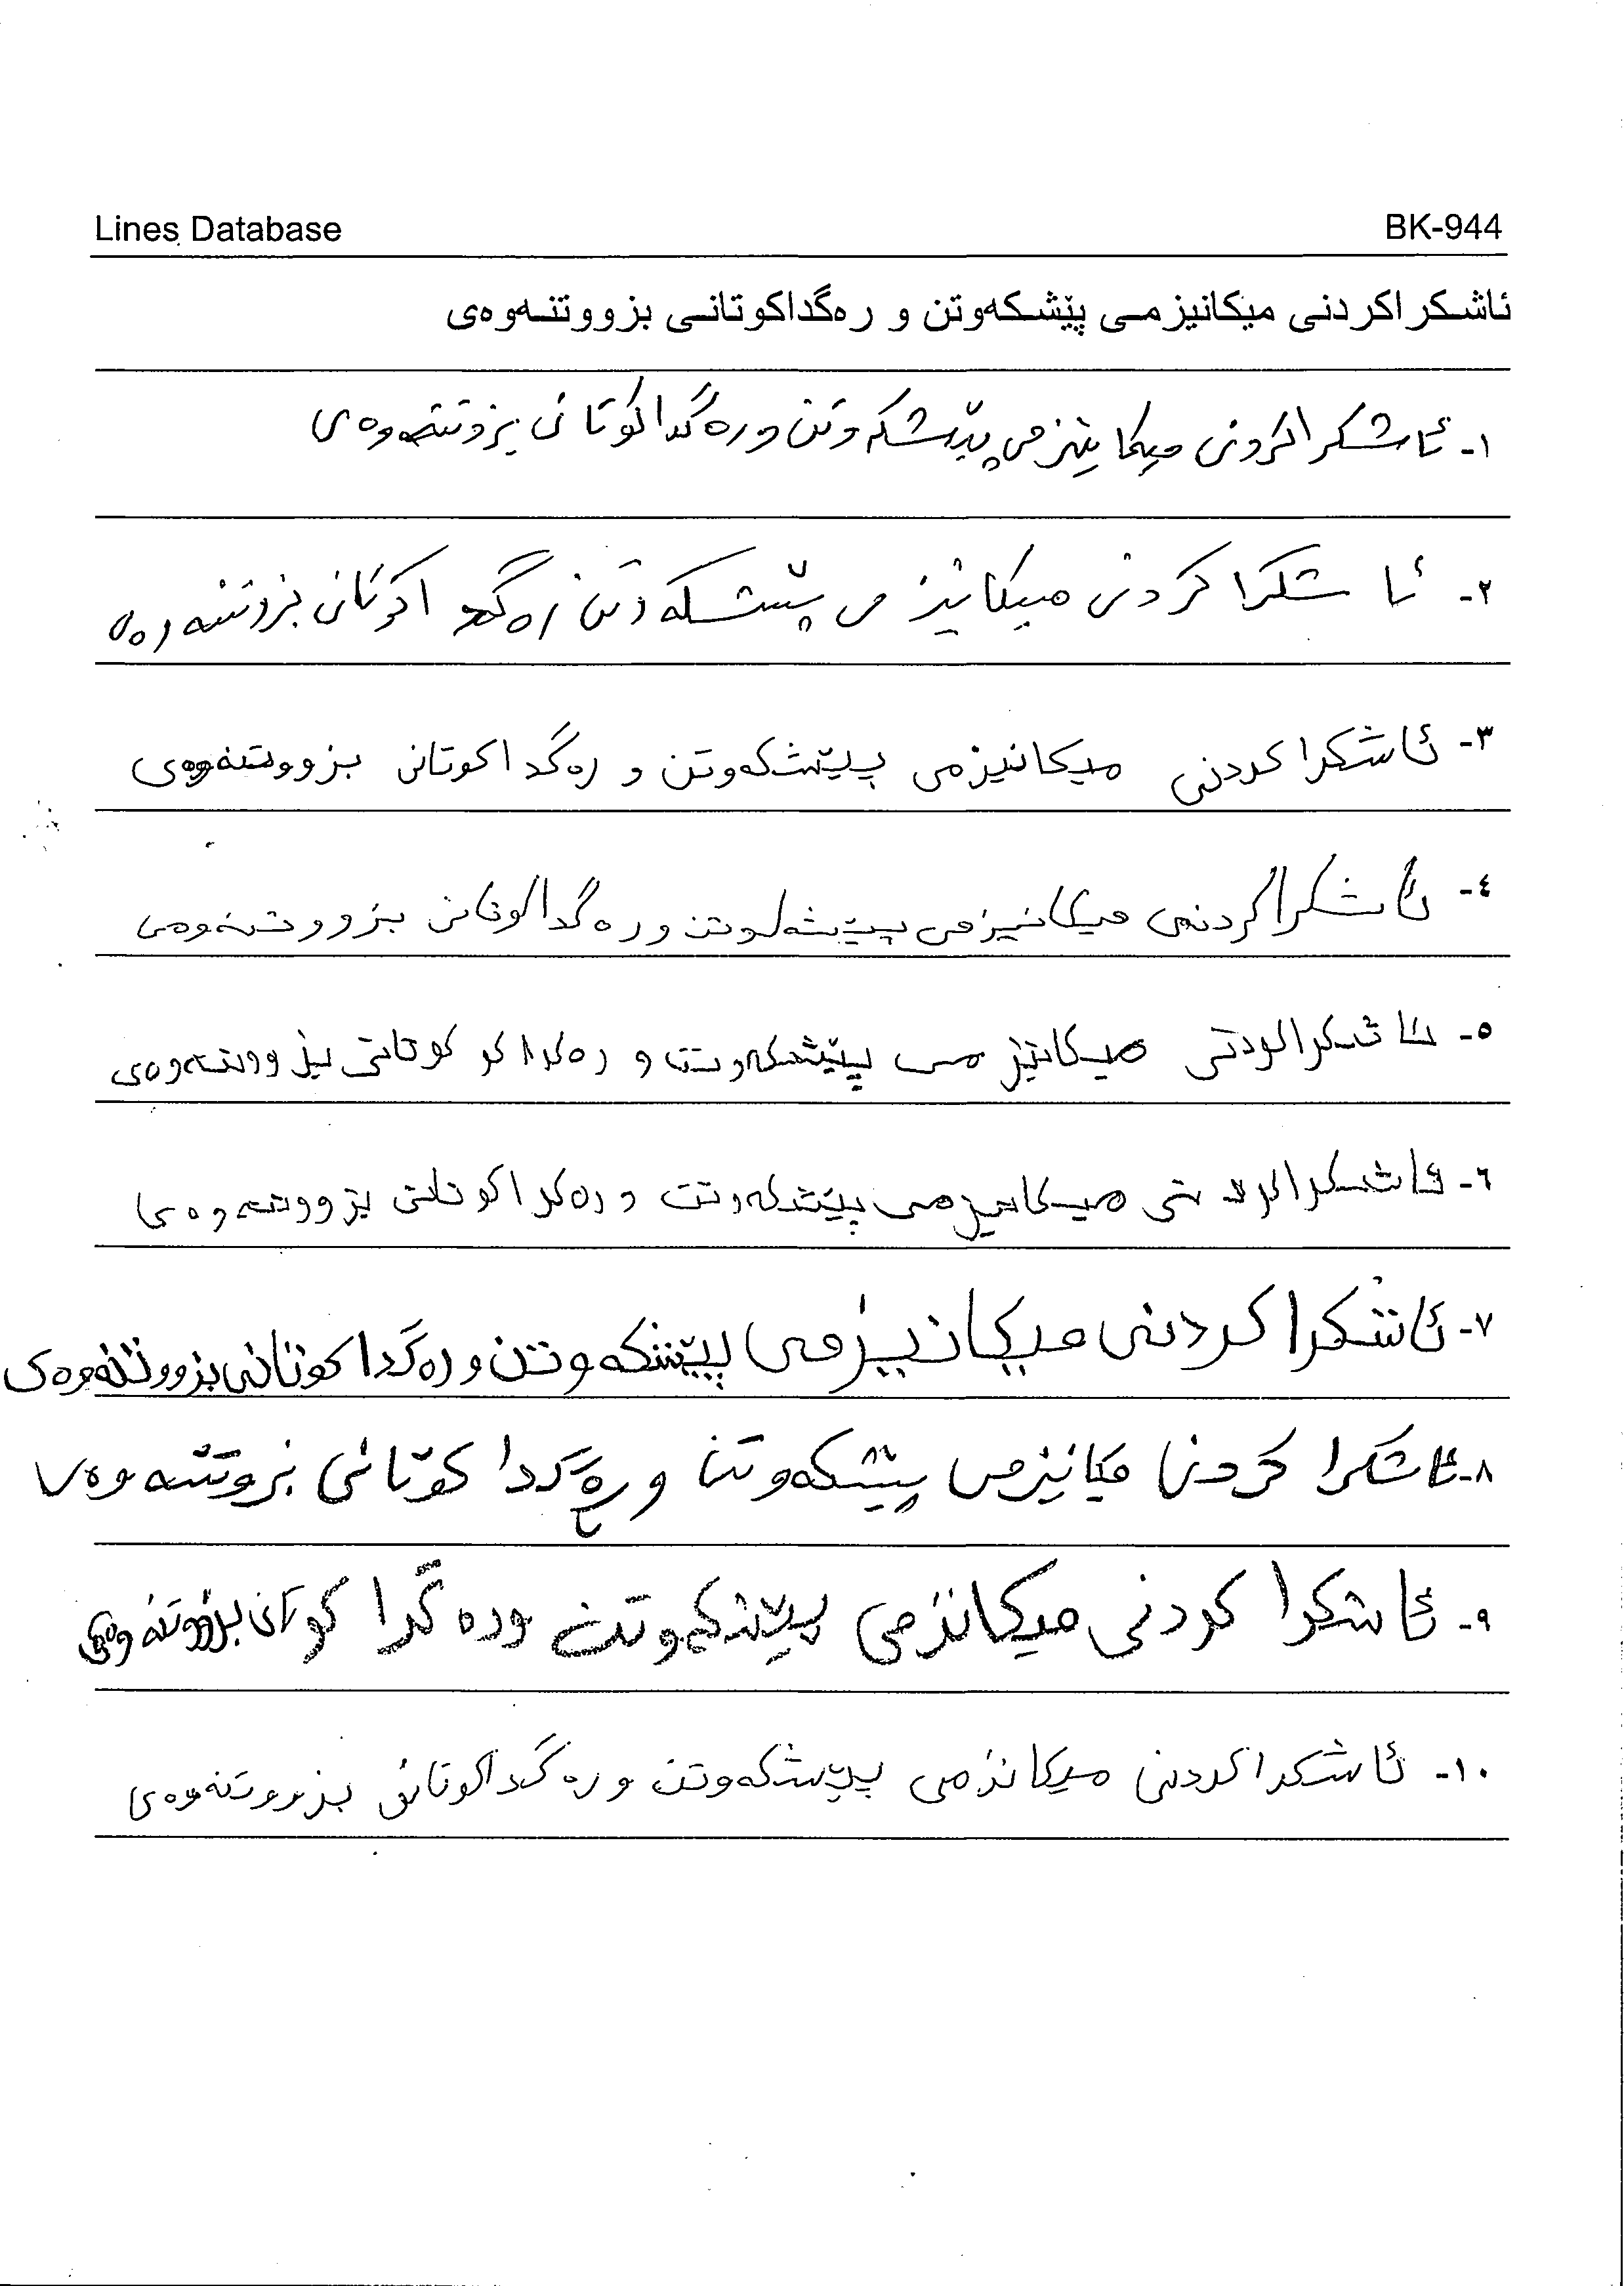 Lines Database BK-944
ئاشکراکردنی میکانیزمی پێشکەوتن و رەگداکوتانی بزووتنەوەی
١- ئاشکراکردنی میکانیزمی پێشکەوتن و رەگداکوتانی بزوتنەوەی
٢- ئاشکرا کردنی میکانیزمی پێشکەوتن رەگد اکوتانی بزوتنەوەی
٣- ئاشکرا کردنی میکانیزمی پێشکەوتن و رەگداکوتانی بزووتنەوەی
٤- ئاشکراکردنی میکانیزمی پێشەکوتن و رەگداکوتانی بزووتنەوەی
٥- ئاشکراکردنی میکانیزمی پێشکەوتن و رەکدا کو کوتانی بزووتنەوەی
٦- ئاشکراکردنی میکانیزمی پێشکەوتن و رەکداکوتانی بزووتنەوەی
٧- ئاشکرا کردنی میکانیزمی پێشکەوتن و رەگدا کوتانی بزووتنەوەی
٨- ئاشکرا کردنی میکانیزمی پێشکەوتن و رەگدا کۆتانی بزوتنەوەی
٩- ئاشکرا کردنی میکانزمی پێشکەوتن و رەگدا کوتانی بزووتنەوەی
١٠- ئاشکرا کردنی میکانزمی پێشکەوتن و رەگداکوتانی بزووتنەوەی